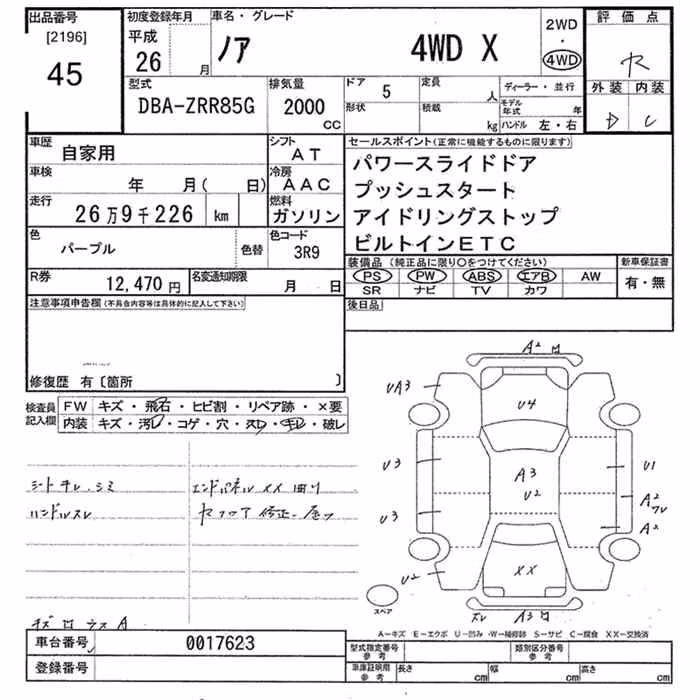 出品番号
[2196]
45
初度登録年月
平成
26
月
車名・グレード
ノア 4WD X
2WD
・
4WD
評価点
外装 内装
D C
型式
DBA-ZRR85G
排気量
2000
CC
ドア 5
定員
人
形状
積載
kg
ディーラー・並行
モデル年式
年
ハンドル 左・右
車歴
自家用
シフト
AT
車検
年 月( 日)
冷房
AAC
走行
26万9千226 km
燃料
ガソリン
色
パープル
色替
色コード
3R9
R券
12,470 円
名変通知期限
月 日
セールスポイント(正常に機能するものに限ります)
パワースライドドア
プッシュスタート
アイドリングストップ
ビルトインETC
装備品(純正品に限り○をつけてください)
PS PW ABS エアB AW
SR ナビ TV カワ
新車保証書
有・無
後日品
注意事項申告欄(不具合内容等は具体的に記入して下さい)
自家用
修復歴 有〔箇所 〕
検査員
記入欄
FW キズ・飛石・ヒビ割・リペア跡・×要
内装 キズ・汚レ・コゲ・穴・スレ・キレ・破レ
シートキレ、シミ
ハンドルスレ
エンドパネルXX曲り
A2
UA3
U4
U3
A3
U2
U1
U3
A2
フレ
A2
U2
XX
スレ
A3
スペア
A-キズ E-エクボ U-凹み W-補修跡 S-サビ C-腐食 XX-交換済
車台番号 0017623
登録番号
型式指定番号
参考
類別区分番号
参考
車庫証明用
参考
長さ cm
幅 cm
高さ cm